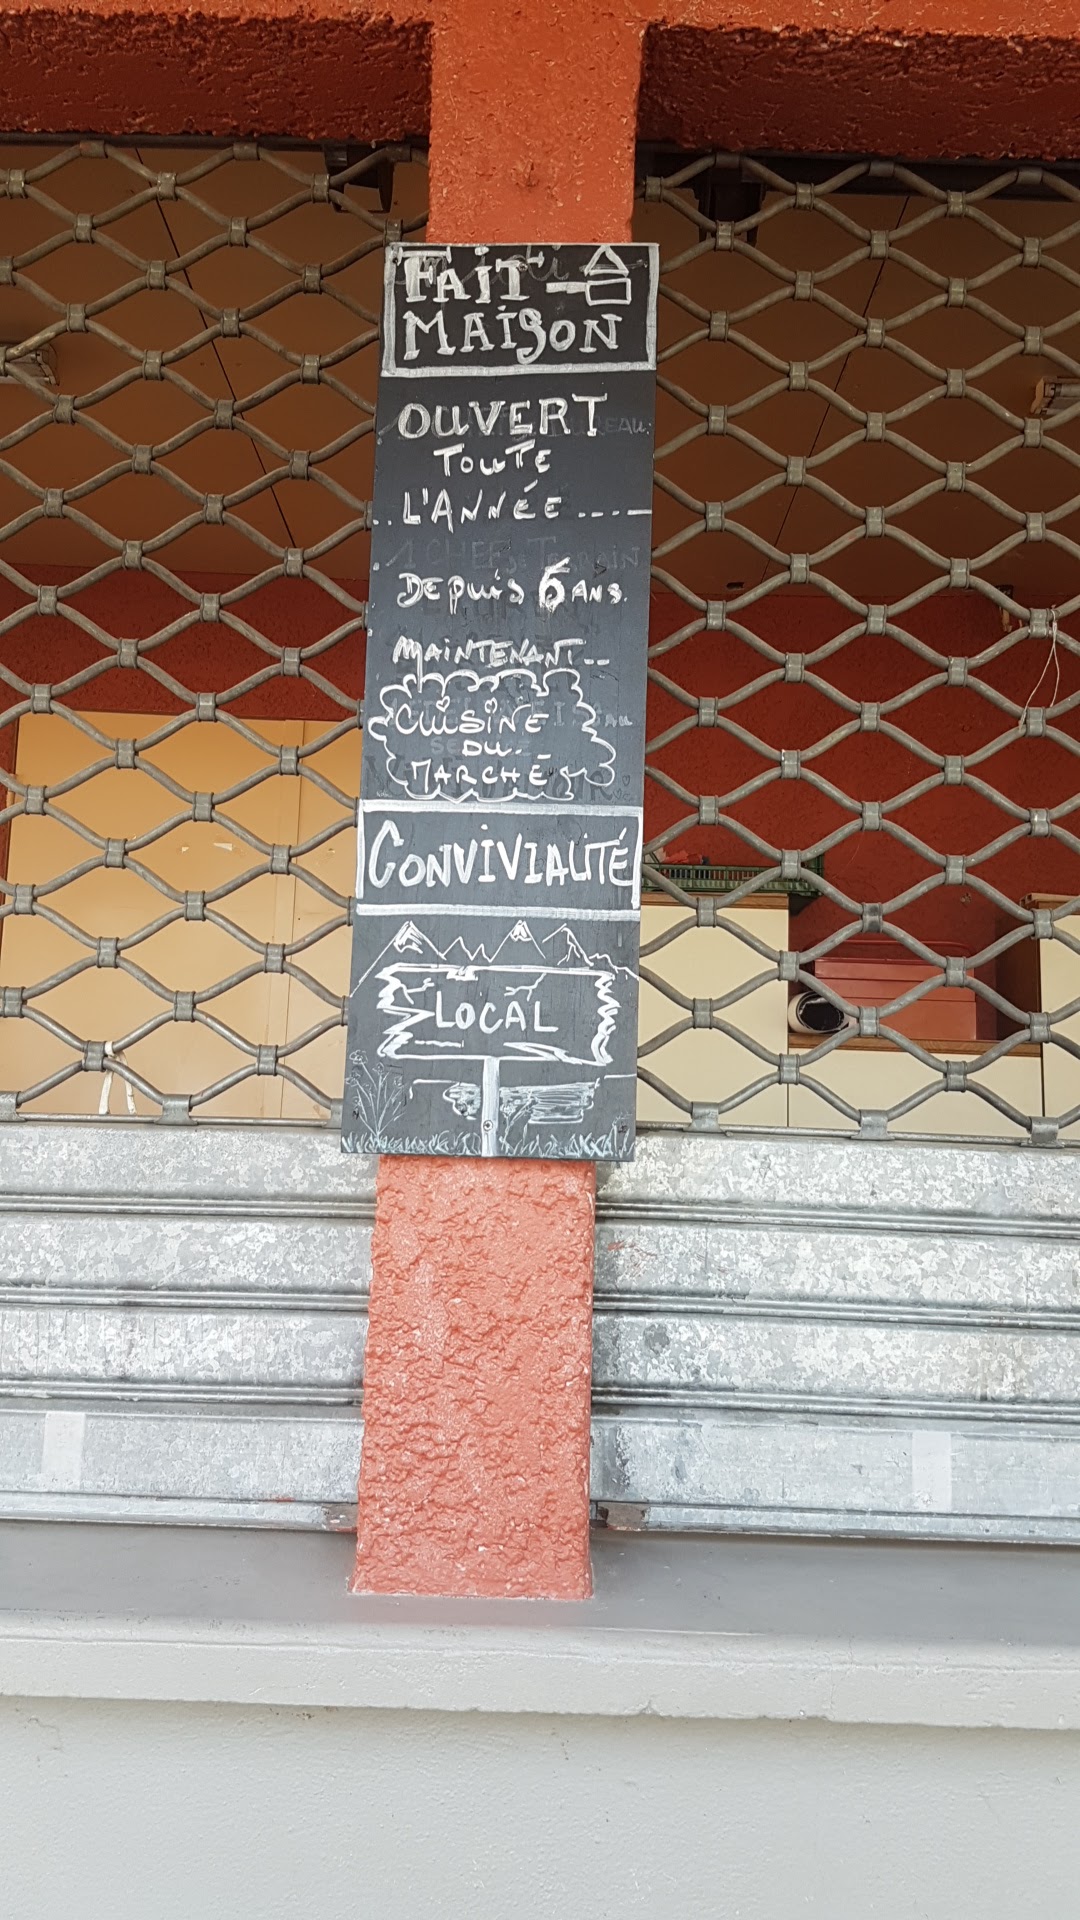 FAIT
MAISON
OUVERT
TOUTE
L'ANNÉE
1 CHEF
DEPUIS 6 ANS.
MAINTENANT..
CUISINE
DU
MARCHÉ
CONVIVIALITÉ
LOCAL